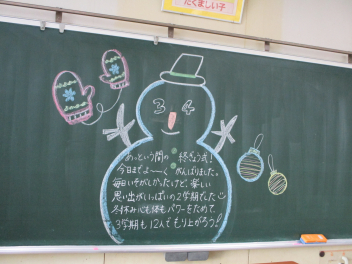 たくましい子
3 4
あっという間の 終ぎょう式!
今日までよ〜く がんばりました。
毎日いそがしかったけど、楽しい
思い出がいっぱいの2学期でした
冬休み心も体もパワーをためて、
3学期も12人でもり上がろう!